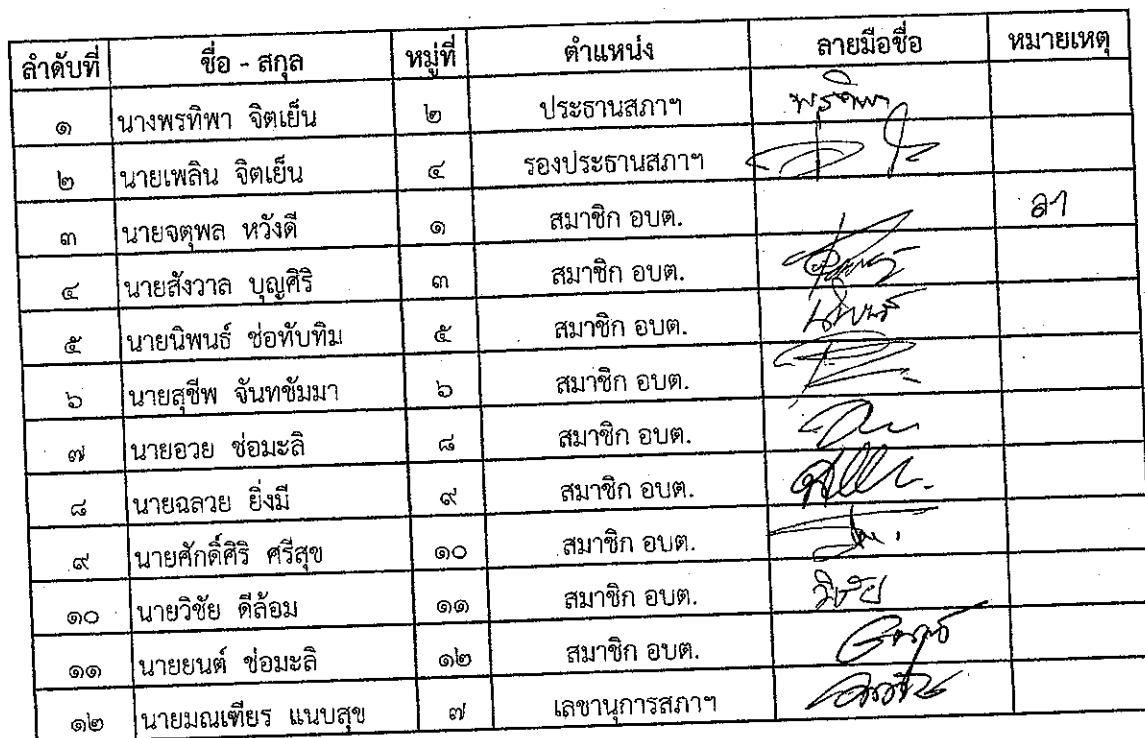 ลำดับที่ ชื่อ - สกุล หมู่ที่ ตำแหน่ง ลายมือชื่อ หมายเหตุ
๑ นางพรทิพา จิตเย็น ๒ ประธานสภาฯ พรทิพา
๒ นายเพลิน จิตเย็น ๔ รองประธานสภาฯ
๓ นายจตุพล หวังดี ๑ สมาชิก อบต. ลา
๔ นายสังวาล บุญศิริ ๓ สมาชิก อบต.
๕ นายนิพนธ์ ช่อทับทิม ๕ สมาชิก อบต. นิพนธ์
๖ นายสุชีพ จันทชัมมา ๖ สมาชิก อบต.
๗ นายอวย ช่อมะลิ ๘ สมาชิก อบต.
๘ นายฉลวย ยิ่งมี ๙ สมาชิก อบต.
๙ นายศักดิ์ศิริ ศรีสุข ๑๐ สมาชิก อบต.
๑๐ นายวิชัย ดีล้อม ๑๑ สมาชิก อบต. วิชัย
๑๑ นายยนต์ ช่อมะลิ ๑๒ สมาชิก อบต.
๑๒ นายมณเฑียร แนบสุข ๗ เลขานุการสภาฯ